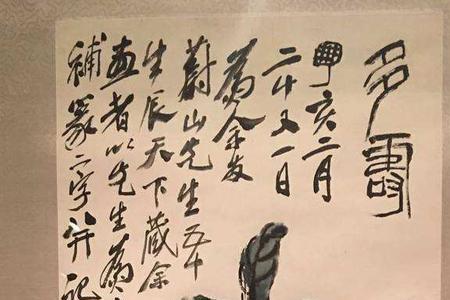 多壽
亥二月
二十又一日
為余友
蔚山先生五十
生辰天下藏余
畫者以先生為
補篆二字并記